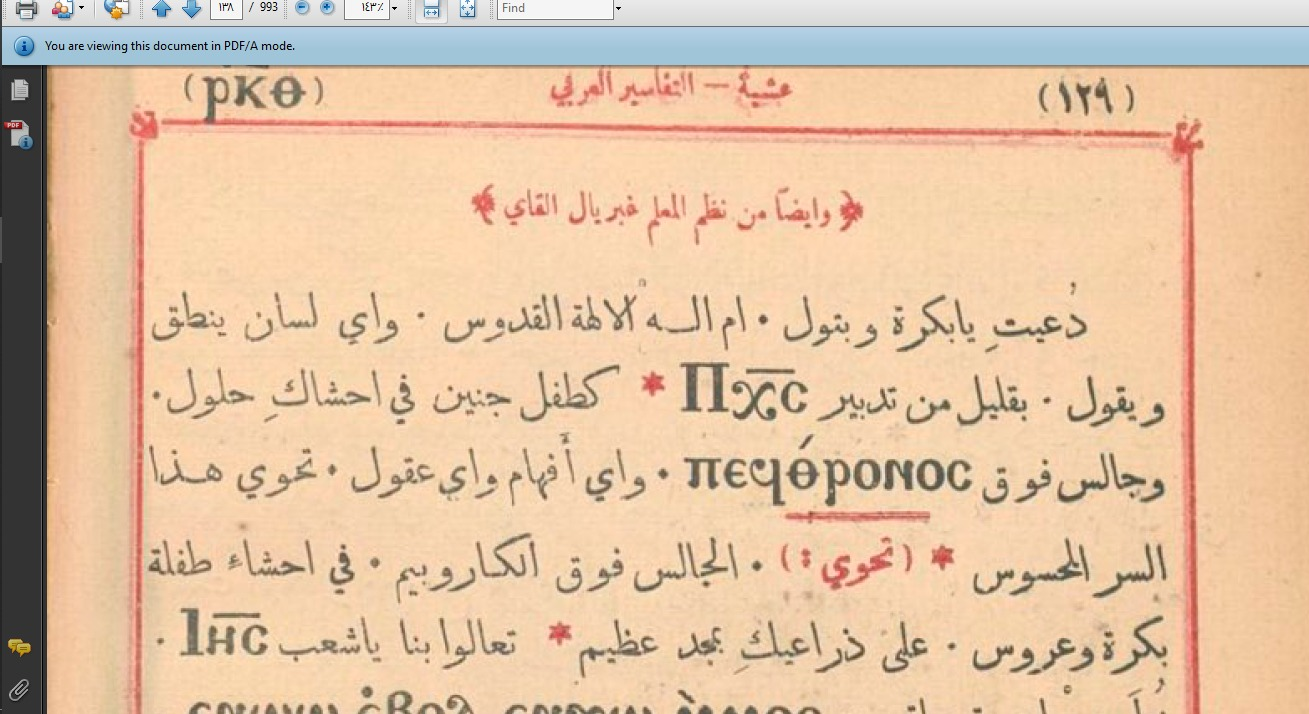 ١٣٨ / 993 ١٤٣٪ Find
You are viewing this document in PDF/A mode.
(ⲣⲕⲑ) عشية — التفاسير العربي (١٢٩)
﴿ وايضًا من نظم المعلم غبريال القاي ﴾
دُعيتِ يابكرة وبتول • ام الـــه الالهة القدوس • واي لسان ينطق
ويقول • بقليل من تدبير Ⲡⲭ̅ⲥ̅ * كطفل جنين في احشاكِ حلول •
وجالس فوق ⲡⲉϥⲑ̀ⲣⲟⲛⲟⲥ • واي أفهام واي عقول • تحوي هـذا
السر المحسوس * ( تحوي : ) • الجالس فوق الكاروبيم • في احشاء طفلة
بكرة وعروس • على ذراعيكِ بمجد عظيم * تعالوا بنا ياشعب Ⲓⲏ̅ⲥ̅ •